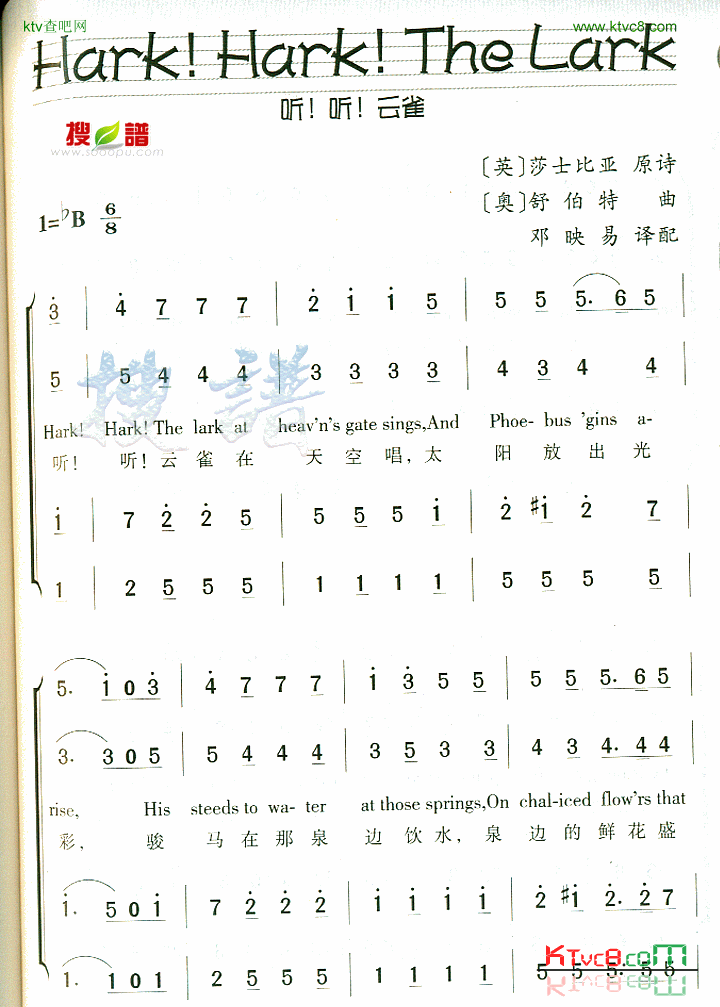 ktv查吧网 www.ktvc8.com
Hark! Hark! The Lark
听！听！云雀
搜谱
www.sooopu.com
〔英〕莎士比亚 原诗
〔奥〕舒伯特 曲
邓映易 译配
1=♭B 6/8
3 | 4 7 7 7 | 2 1 1 5 | 5 5 5. 6 5 |
5 | 5 4 4 4 | 3 3 3 3 | 4 3 4 4 |
搜谱
Hark! Hark! The lark at heav'n's gate sings,And Phoe- bus 'gins a-
听！ 听！云雀在 天空唱，太 阳放出光
1 | 7 2 2 5 | 5 5 5 1 | 2 #1 2 7 |
1 | 2 5 5 5 | 1 1 1 1 | 5 5 5 5 |
5. 1 0 3 | 4 7 7 7 | 1 3 5 5 | 5 5 5. 6 5 |
3. 3 0 5 | 5 4 4 4 | 3 5 3 3 | 4 3 4. 4 4 |
rise, His steeds to wa- ter at those springs,On chal-iced flow'rs that
彩， 骏 马在那泉 边饮水，泉 边的鲜花盛
1. 5 0 1 | 7 2 2 2 | 1 1 1 1 | 2 #1 2. 2 7 |
1. 1 0 1 | 2 5 5 5 | 1 1 1 1 | 5 5 5. 5 5
KTvc8.com